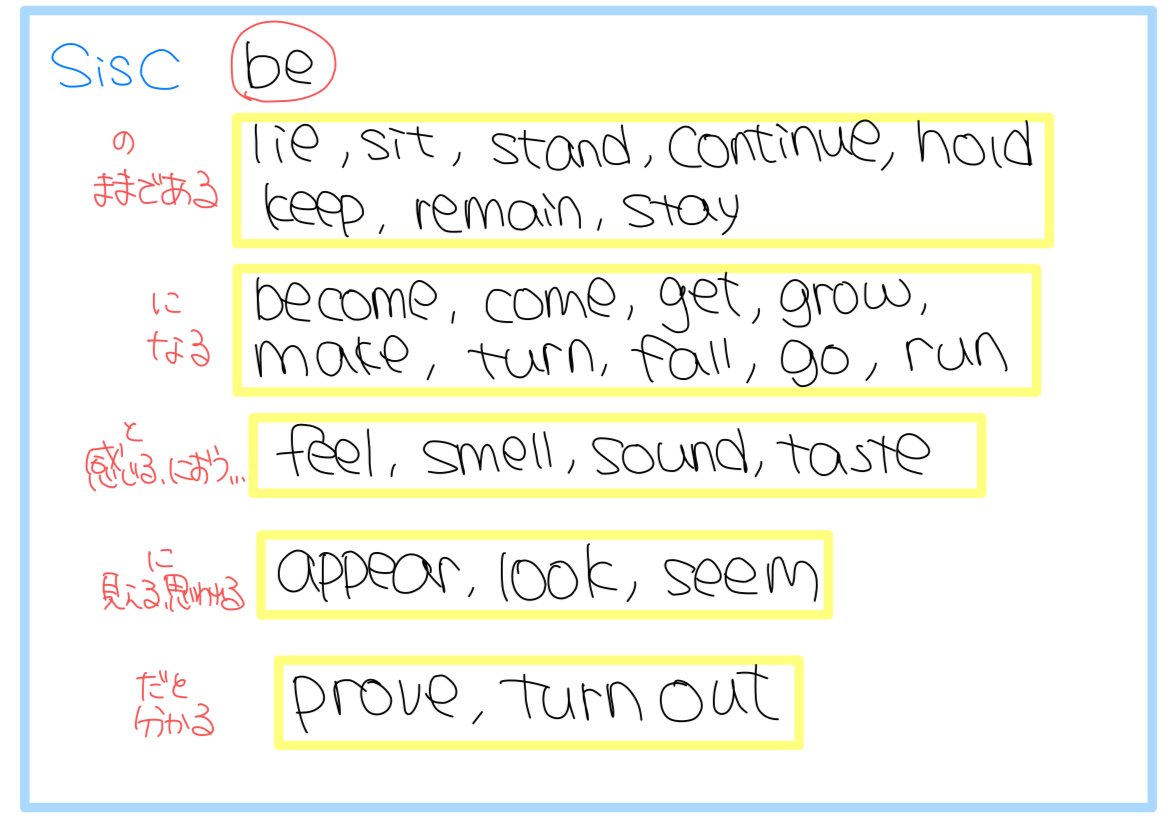 SisC be
の
ままである
lie, sit, stand, continue, hold
keep, remain, stay
に
なる
become, come, get, grow,
make, turn, fall, go, run
と
感じる、におう...
feel, smell, sound, taste
に
見える、思われる
appear, look, seem
だと
分かる
prove, turn out